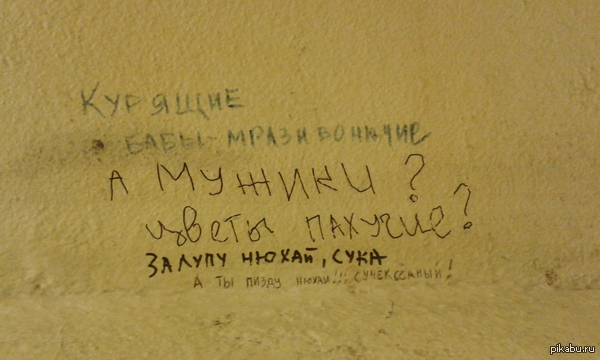 Курящие
бабы-мрази вонючие
А мужики?
цветы пахучие?
ЗАЛУПУ НЮХАЙ, СУКА
А ТЫ ПИЗДУ НЮХАЙ!!!
pikabu.ru